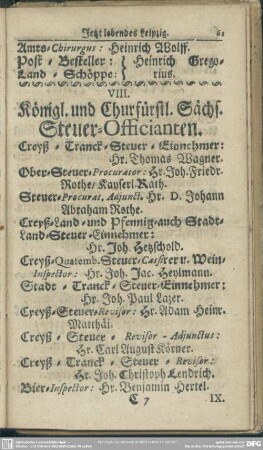 Jetzt lebendes Leipzig. 61
Amts-Chirurgus: Heinrich Wolff.
Post-Besteller: } Heinrich Grego-
Land-Schöppe: } rius.
VIII.
Königl. und Churfürstl. Sächs.
Steuer-Officianten.
Creyß-Tranck-Steuer-Einnehmer:
Hr. Thomas Wagner.
Ober-Steuer-Procurator: Hr. Joh. Friedr.
Rothe/ Kayserl. Rath.
Steuer-Procurat. Adjunct. Hr. D. Johann
Abraham Rothe.
Creyß-Land-und Pfennig-auch Stadt-
Land-Steuer-Einnehmer:
Hr. Joh. Hetzschold.
Creyß-Quatemb. Steuer-Cassirer u. Wein-
Inspector: Hr. Joh. Jac. Heylmann.
Stadt-Tranck-Steuer-Einnehmer:
Hr. Joh. Paul Lazer.
Creyß-Steuer-Revisor: Hr. Adam Heinr.
Matthäi.
Creyß-Steuer-Revisor-Adjunctus:
Hr. Carl August Körner.
Creyß-Tranck-Steuer-Revisor:
Hr. Joh. Christoph Lendrich.
Bier-Inspector: Hr. Benjamin Hertel.
C 7 IX.